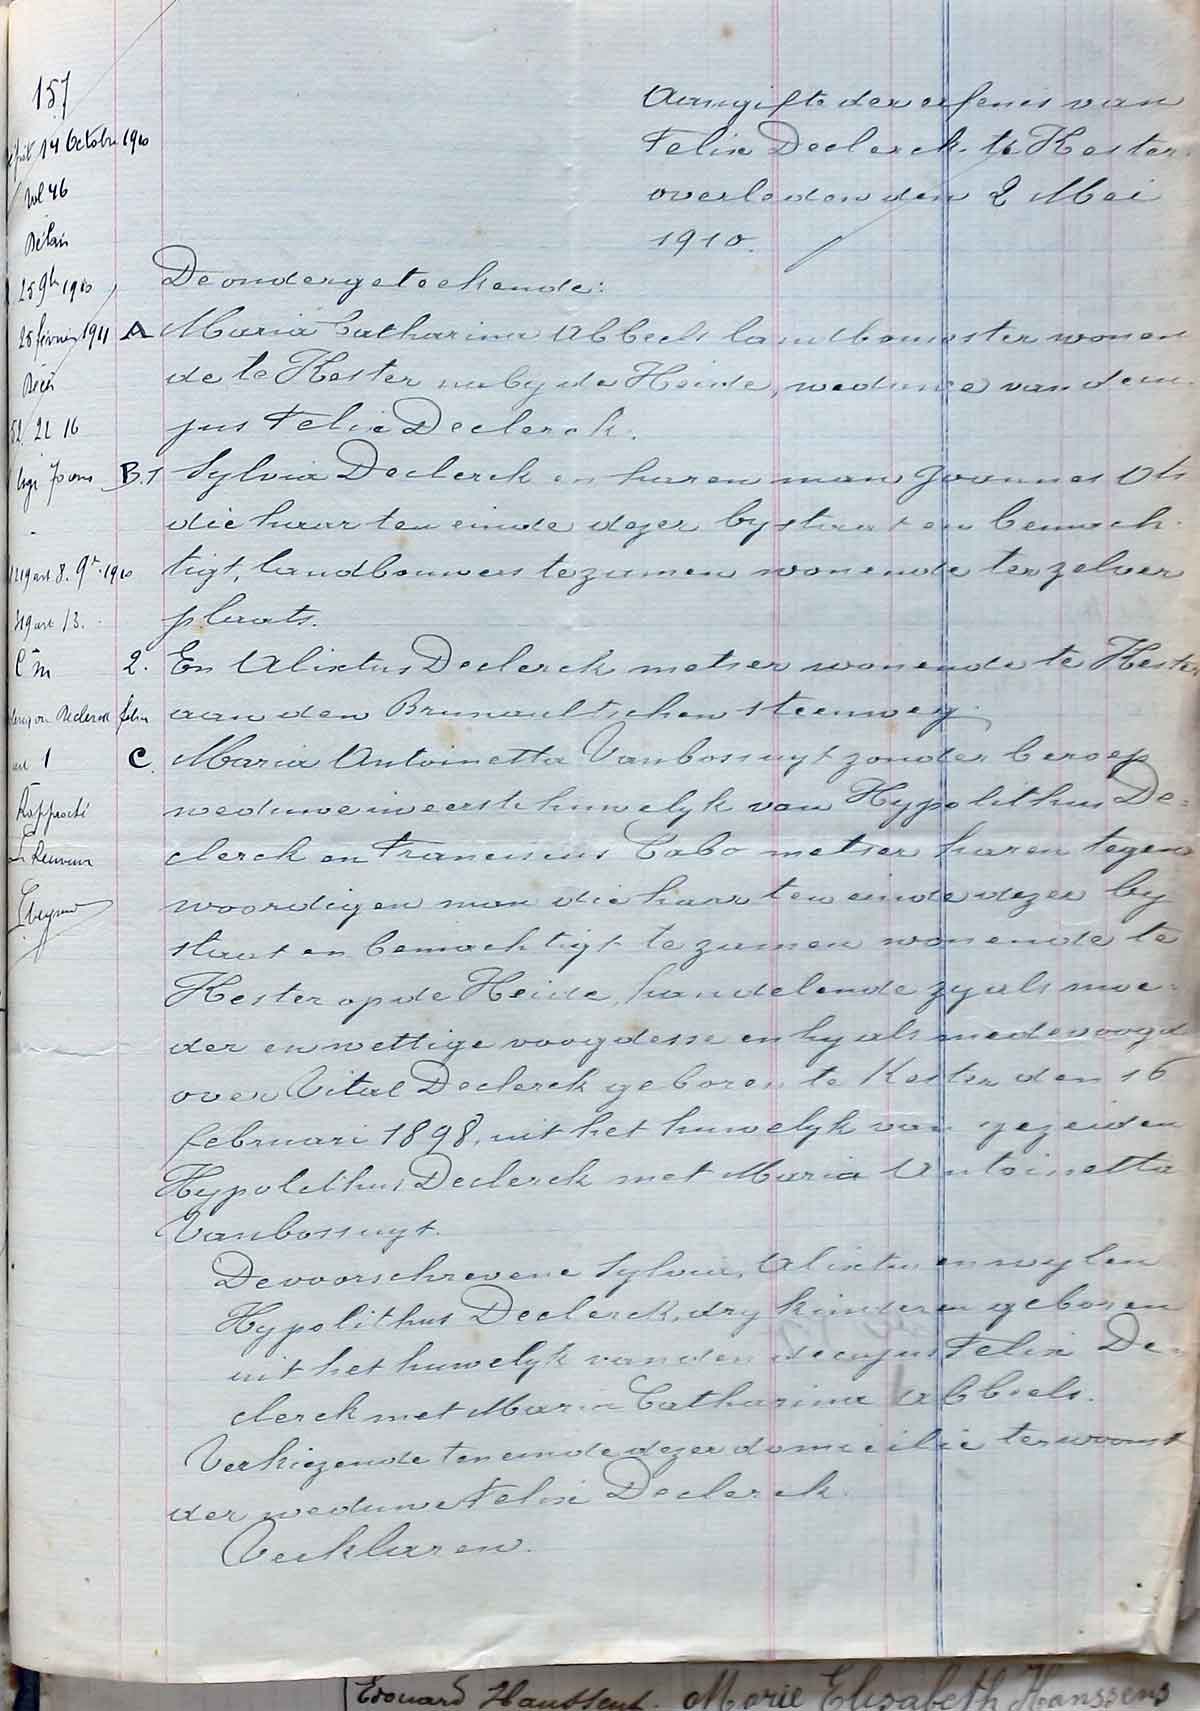 157
14 Octobre 1910
Vol 46
Délai
25 9bre 1910
28 février 1911
Reçu
82 21 16
art 8. 9re 1910
319 art 13.
Declerck felix
art 1
Rapproché
Le Receveur
Aangifte der erfenis van
Felix Declerck te Kester
overleden den 2 Mei
1910.
De ondergeteekende:
A Maria Catharina Abbeels landbouwster wonen
de te Kester naby de Heide, weduwe van decu-
jus Felix Declerck.
B. 1 Sylvia Declerck en haren man Joannes Ots
die haar ten einde dezer bystaat en bemach-
tigt, landbouwers tezamen wonende terzelver
plaats.
2. En Alixtus Declerck metser wonende te Kester
aan den Brunaultschen steenweg.
C. Maria Antoinetta Vanbossuyt zonder beroep
weduwe in eerste huwelyk van Hypolithus De=
clerck en Franciscus Cabo metser haren tegen
woordigen man die haar ten einde dezer by
staat en bemachtigt te zamen wonende te
Kester op de Heide, handelende zy als moe-
der en wettige voogdesse en hy als medevoogd
over Vital Declerck geboren te Kester den 16
februari 1898, uit het huwelyk van gezeiden
Hypolithus Declerck met Maria Antoinetta
Vanbossuyt.
De voorschrevene Sylvia, Alixtus en wylen
Hypolithus Declerck, dry kinderen geboren
uit het huwelyk van den decujus Felix De-
clerck met Maria Catharina Abbeels.
Verkiezende ten einde dezer domicilie ter woonst
der weduwe Felix Declerck.
Verklaren.
Edouard Marie Elisabeth Hanssens